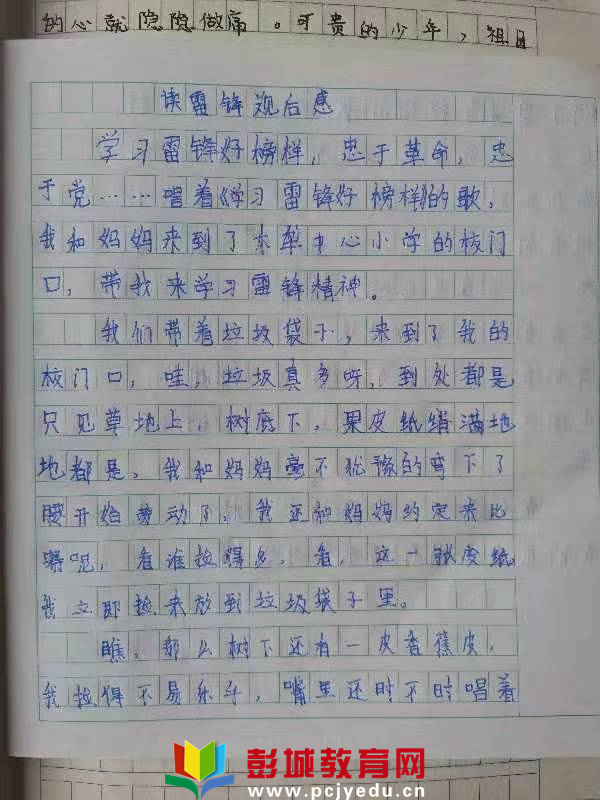 的心就隐隐做痛。可贵的少年，祖国
读雷锋观后感
学习雷锋好榜样，忠于革命，忠
于党……唱着《学习雷锋好榜样》的歌，
我和妈妈来到了 中心小学的校门
口，带我来学习雷锋精神。
我们带着垃圾袋子，来到了我的
校门口，哇，垃圾真多呀，到处都是
只见草地上，树底下，果皮纸绡满地
地都是，我和妈妈毫不犹豫的弯下了
腰开始劳动了，我还和妈妈约定来比
赛呢，看谁捡得多，看，这一张废纸
我立即捡来放到垃圾袋子里。
瞧，那么树下还有一皮香蕉皮，
我捡得不易乐乎，嘴里还时不时唱着
彭城教育网
www.pcjyedu.cn